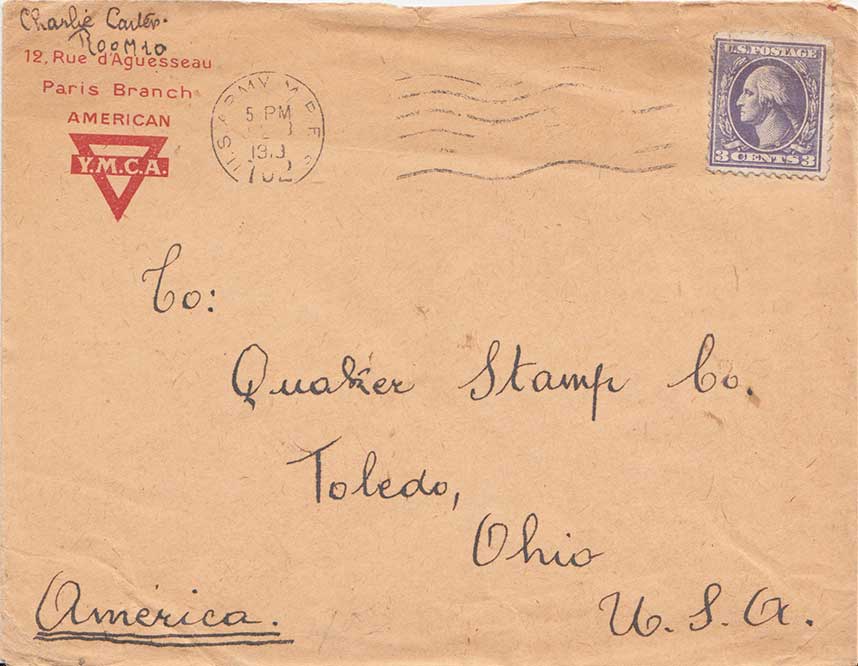 Charlie Carter.
Room 10
12, Rue d'Aguesseau
Paris Branch
AMERICAN
Y.M.C.A.
U.S. ARMY M.P.E.S.
5 PM
702
U.S. POSTAGE
3 CENTS 3
To:
Quaker Stamp Co.
Toledo,
Ohio
U.S.A.
America.